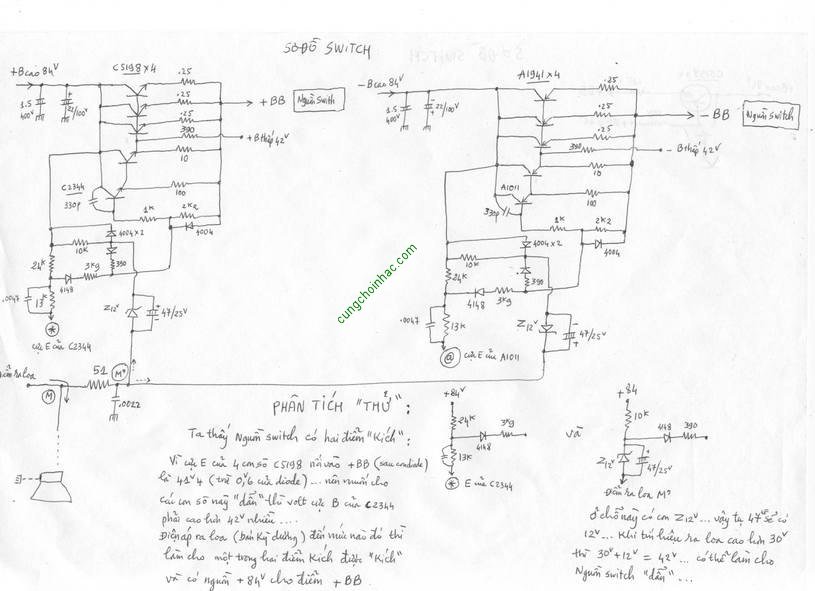 SƠ ĐỒ SWITCH
+Bcao 84V
C5198 x 4
.25
.25
.25
390
10
100
1.5
400V
+
22/100V
+BB
Nguồn Swith
+Bthấp 42V
C2344
330p
1K
2K2
4004
4004 x 2
10K
24K
390
3K9
4148
.0047
13K
Z12V
47/25V
*
cực E của C2344
−Bcao 84V
A1941 x 4
.25
.25
.25
390
10
100
1.5
400V
22/100V
−BB
Nguồn switch
−Bthấp 42V
A1011
330p
1K
2K2
4004
4004 x 2
10K
24K
390
3K9
4148
.0047
13K
Z12V
47/25V
@
cực E của A1011
điểm ra loa
51
M
M"
.0022
PHÂN TÍCH "THỬ" :
Ta thấy Nguồn switch có hai điểm "Kích" :
Vì cực E của 4 con sò C5198 nối vào +BB (sau con diode)
là 41V4 (trừ 0,6 của diode) ... nên muốn cho
các con sò này "dẫn" thì volt cực B của C2344
phải cao hơn 42V nhiều ....
Điện áp ra loa (bán kỳ dương) đến mức nào đó thì
làm cho một trong hai điểm Kích được "Kích"
và có nguồn +84V cho điểm +BB.
+84V
24K
3K9
4148
13K
* E của C2344
và
+84
10K
4148
390
Z12V
47/25V
Điểm ra loa M"
Ở chỗ này có con Z12V ... vậy tụ 47uF sẽ có
12V ... Khi tín hiệu ra loa cao hơn 30V
thì 30V + 12V = 42V ... có thể làm cho
Nguồn switch "dẫn" ...
cungchoinhac.com